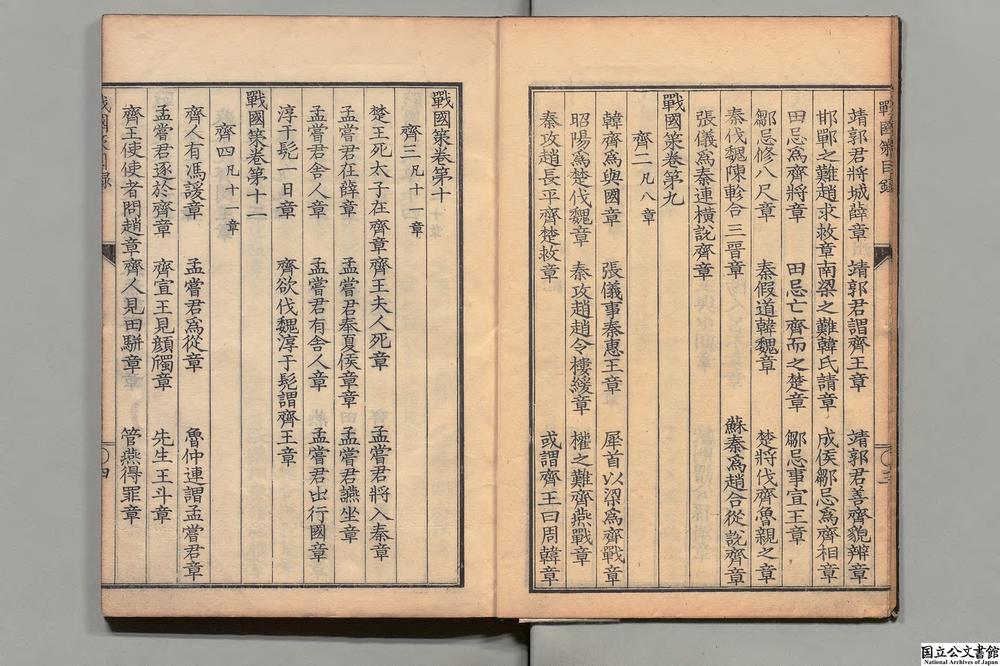 戰國策目錄
靖郭君將城薛章 靖郭君謂齊王章 靖郭君善齊貌辨章
邯鄲之難趙求救章 南梁之難韓氏請章 成侯鄒忌爲齊相章
田忌爲齊將章 田忌亡齊而之楚章 鄒忌事宣王章
鄒忌修八尺章 秦假道韓魏章 楚將伐齊魯親之章
秦伐魏陳軫合三晉章 蘇秦爲趙合從說齊章
張儀爲秦連橫說齊章
戰國策卷第九
齊二凡八章
韓齊爲與國章 張儀事秦惠王章 犀首以梁爲齊戰章
昭陽爲楚伐魏章 秦攻趙趙令樓緩章 權之難齊燕戰章
秦攻趙長平齊楚救章 或謂齊王曰周韓章
〇三
戰國策卷第十
齊三凡十一章
楚王死太子在齊章 齊王夫人死章 孟嘗君將入秦章
孟嘗君在薛章 孟嘗君奉夏侯章章 孟嘗君讌坐章
孟嘗君舍人章 孟嘗君有舍人章 孟嘗君出行國章
淳于髡一日章 齊欲伐魏淳于髡謂齊王章
戰國策卷第十一
齊四凡十一章
齊人有馮諼章 孟嘗君爲從章 魯仲連謂孟嘗君章
孟嘗君逐於齊章 齊宣王見顔斶章 先生王斗章
齊王使使者問趙章 齊人見田騈章 管燕得罪章
戰國策目錄
〇四
国立公文書館
National Archives of Japan